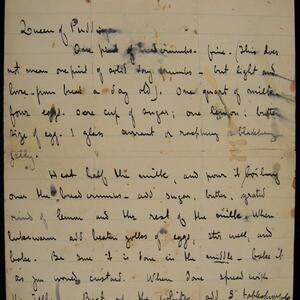 Queen of Puddings
One pint of breadcrumbs - fine. (This does
not mean one pint of solid dry crumbs - but light and
loose - from bread a day old). One quart of milk
four eggs. One cup of sugar; one lemon; butter
size of egg. 1 glass currant or raspberry or blackberry
jelly.
Heat half the milk, and pour it boiling
over the breadcrumbs - add sugar, butter, grated
rind of lemon and the rest of the milk. When
lukewarm add beaten yolks of egg, stir well, and
bake. Be sure it is done in the middle - bake it
as you would custard. When done spread with
the jelly. Beat up the whites, add 3 tablespoons